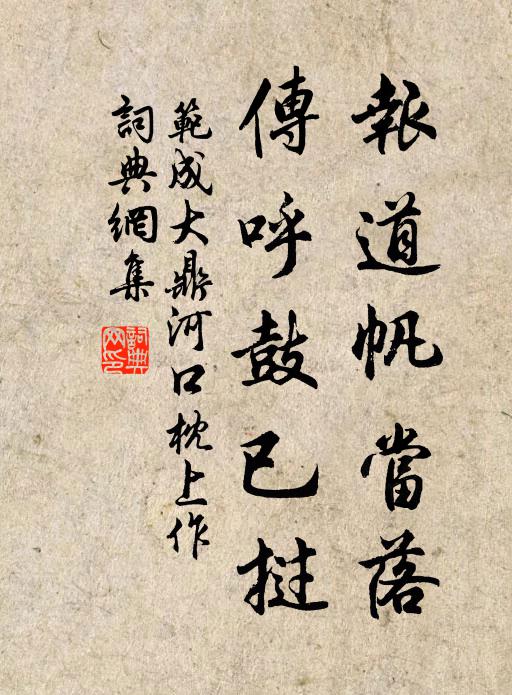 報道帆當落
傳呼鼓已撻
範成大鼎河口枕上作
詞典網集
詞典网印